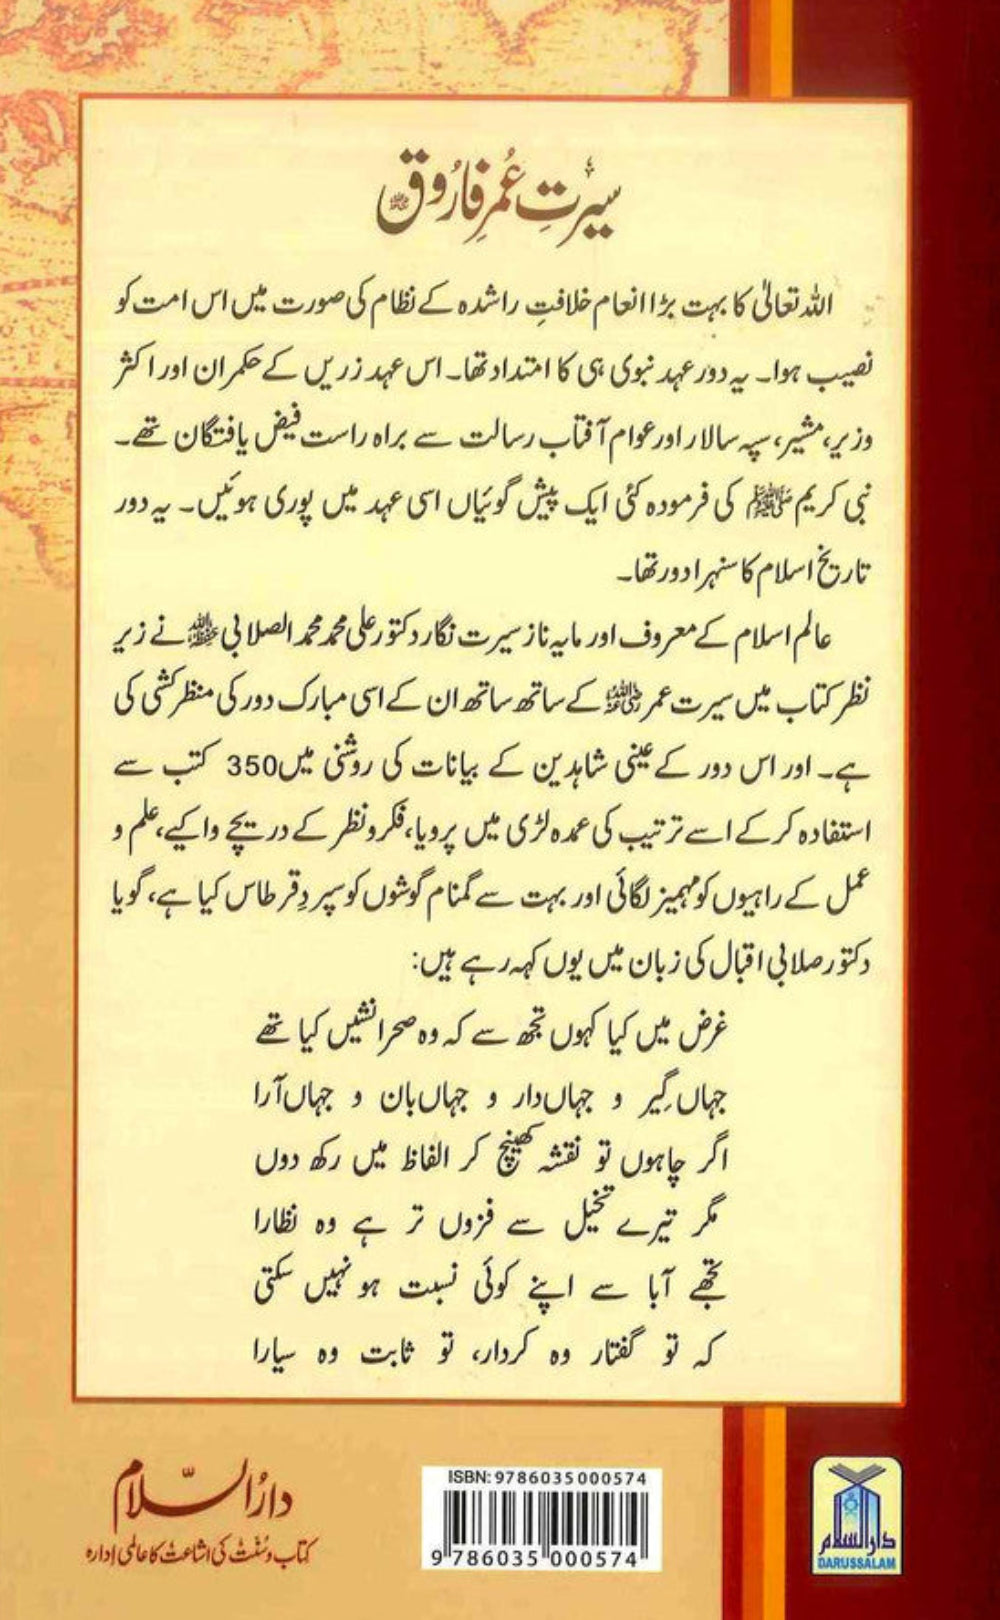 سیرتِ عُمرِ فارُوق رضی اللہ عنہ
اللہ تعالیٰ کا بہت بڑا انعام خلافتِ راشدہ کے نظام کی صورت میں اس امت کو
نصیب ہوا۔ یہ دور عہد نبوی ہی کا امتداد تھا۔ اس عہد زریں کے حکمران اور اکثر
وزیر، مشیر، سپہ سالار اور عوام آفتاب رسالت سے براہ راست فیض یافتگان تھے۔
نبی کریم ﷺ کی فرمودہ کئی ایک پیش گوئیاں اسی عہد میں پوری ہوئیں۔ یہ دور
تاریخ اسلام کا سنہرا دور تھا۔
عالم اسلام کے معروف اور مایہ ناز سیرت نگار دکتور علی محمد محمد الصلابی حفظہ اللہ نے زیر
نظر کتاب میں سیرت عمر رضی اللہ عنہ کے ساتھ ساتھ ان کے اسی مبارک دور کی منظر کشی کی
ہے۔ اور اس دور کے عینی شاہدین کے بیانات کی روشنی میں 350 کتب سے
استفادہ کر کے اسے ترتیب کی عمدہ لڑی میں پرویا، فکر و نظر کے دریچے وا کیے، علم و
عمل کے راہیوں کو مہمیز لگائی اور بہت سے گمنام گوشوں کو سپردِ قرطاس کیا ہے، گویا
دکتور صلابی اقبال کی زبان میں یوں کہہ رہے ہیں:
غرض میں کیا کہوں تجھ سے کہ وہ صحرا نشیں کیا تھے
جہاں گِیر و جہاں دار و جہاں بان و جہاں آرا
اگر چاہوں تو نقشہ کھینچ کر الفاظ میں رکھ دوں
مگر تیرے تخیل سے فزوں تر ہے وہ نظارا
تجھے آبا سے اپنے کوئی نسبت ہو نہیں سکتی
کہ تو گفتار وہ کردار، تو ثابت وہ سیارا
دارُالسّلام
کتاب و سُنّت کی اشاعت کا عالمی ادارہ
ISBN: 9786035000574
9 786035 000574
دارالسلام
DARUSSALAM